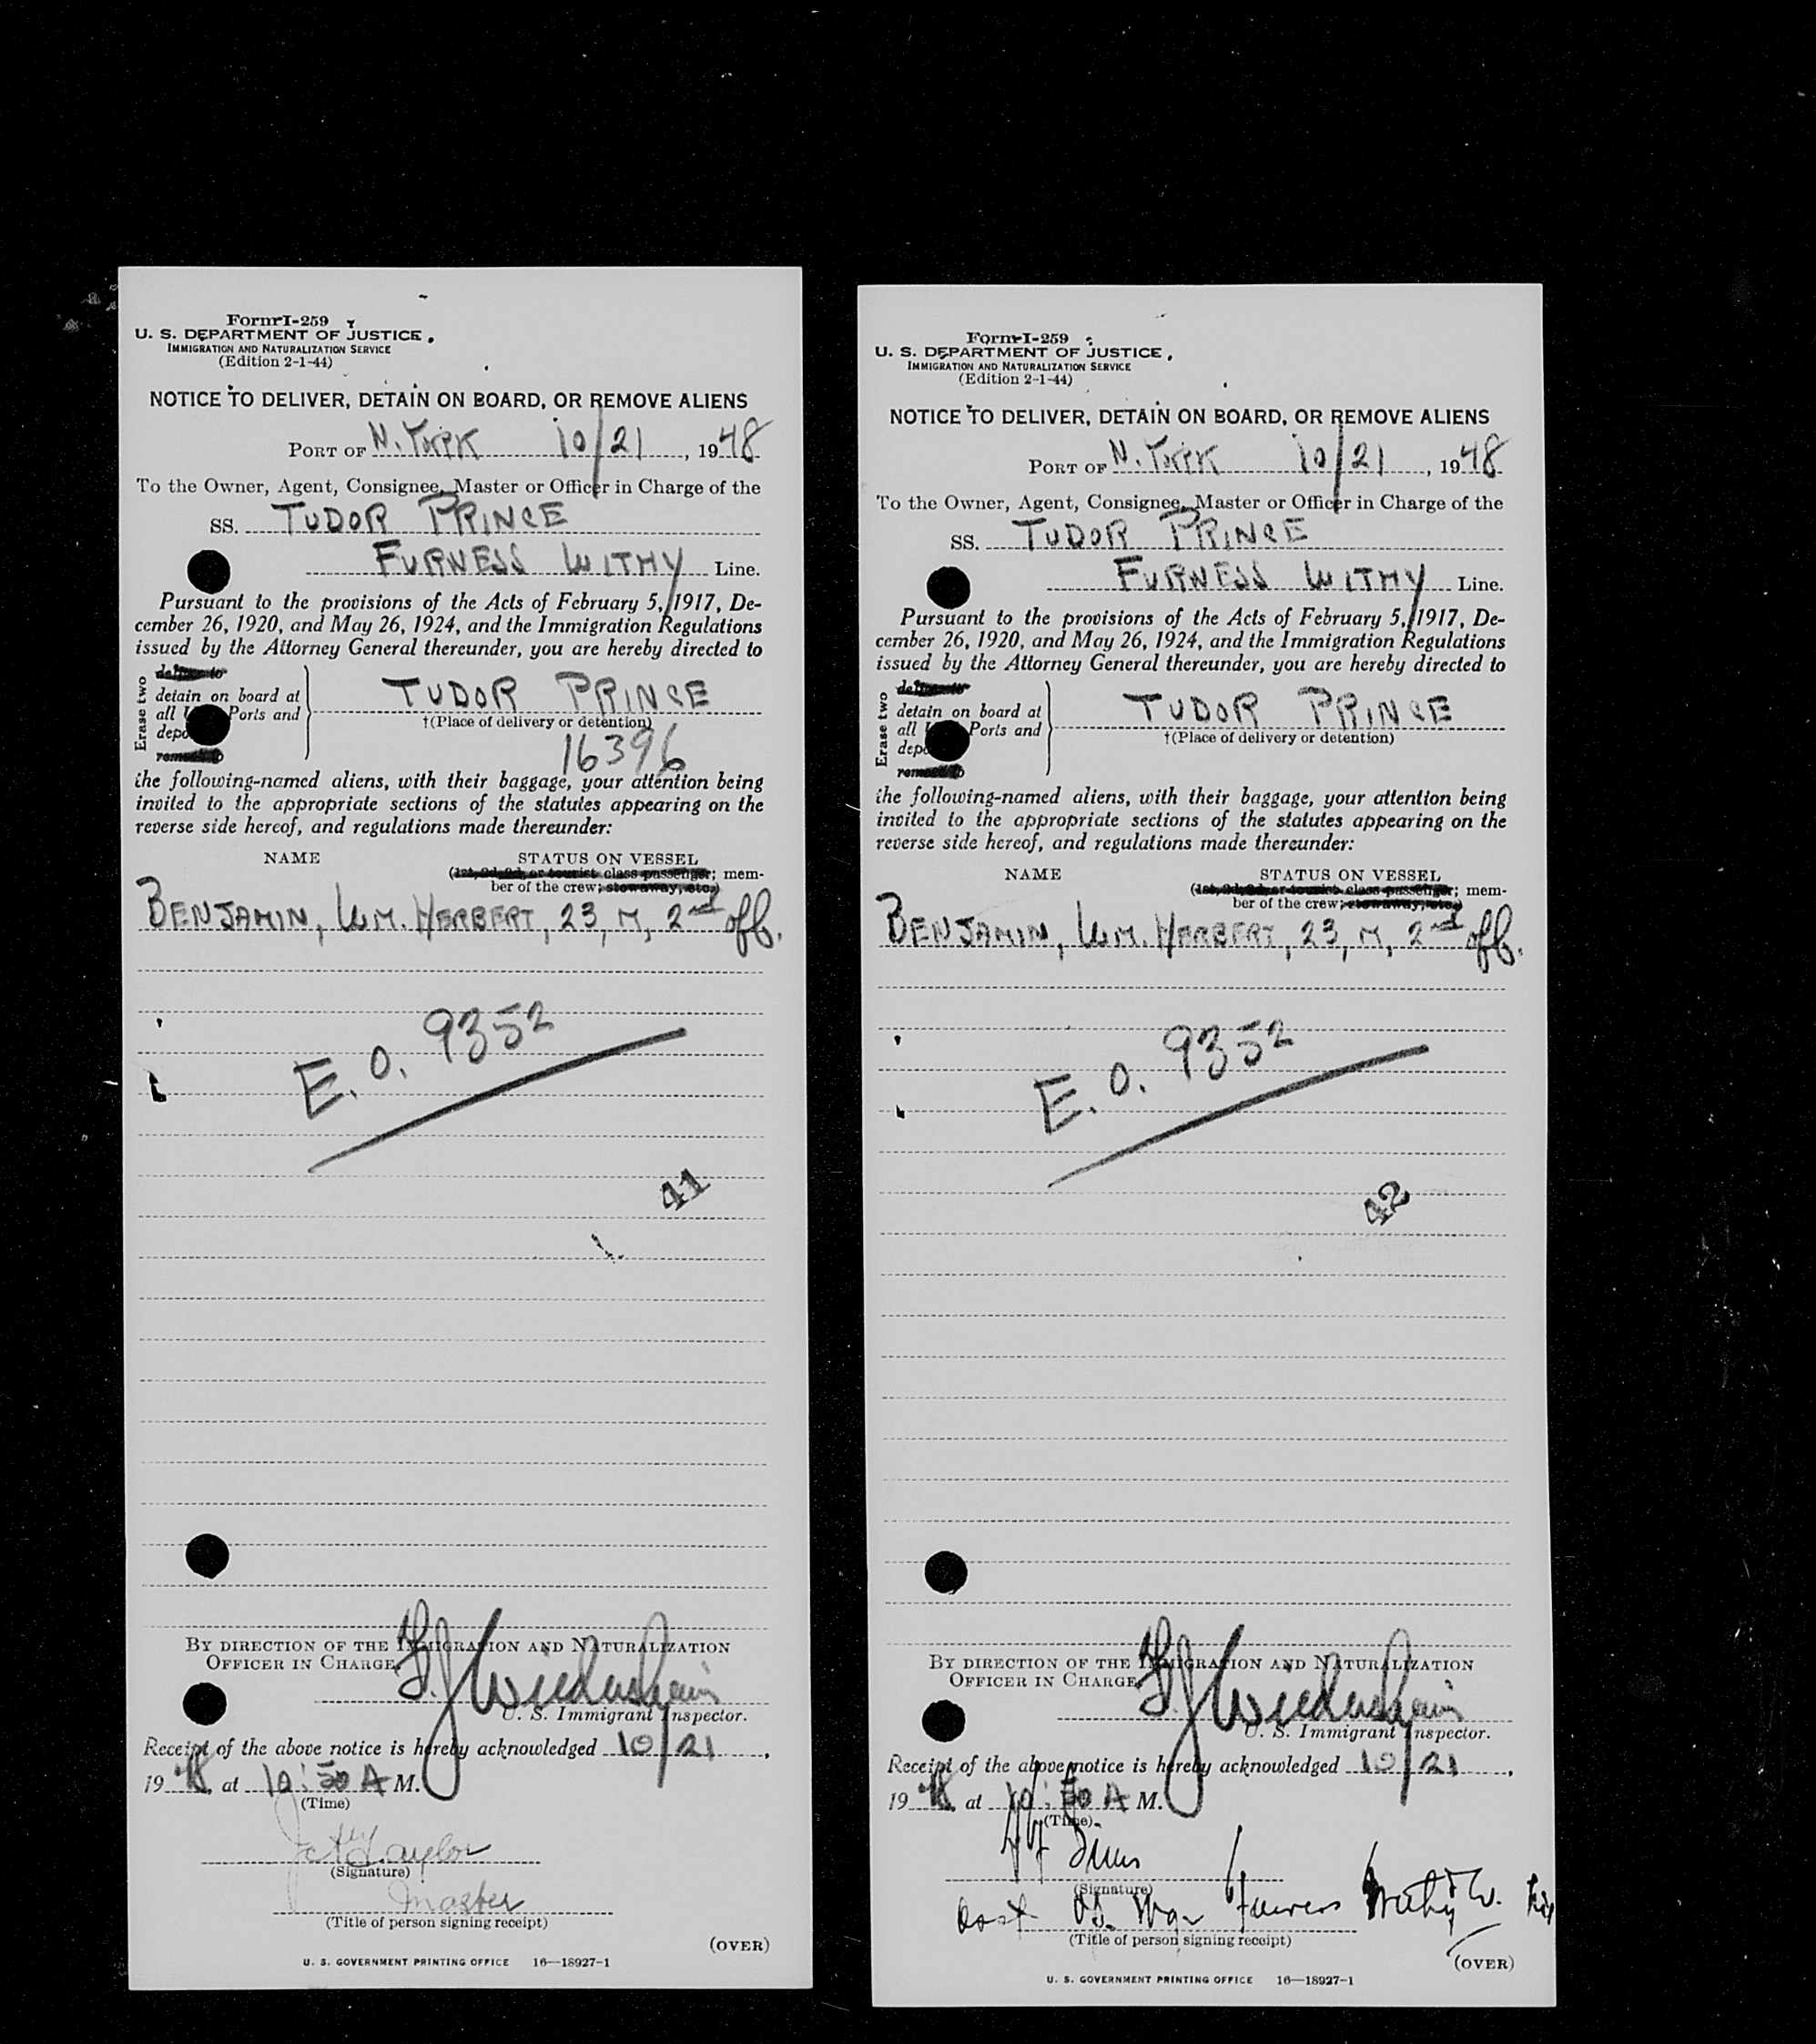 Form I-259
U. S. DEPARTMENT OF JUSTICE
IMMIGRATION AND NATURALIZATION SERVICE
(Edition 2-1-44)
NOTICE TO DELIVER, DETAIN ON BOARD, OR REMOVE ALIENS
PORT OF N. YORK 10/21, 1948
To the Owner, Agent, Consignee, Master or Officer in Charge of the
SS. TUDOR PRINCE
FURNESS WITHY Line.
Pursuant to the provisions of the Acts of February 5, 1917, De-
cember 26, 1920, and May 26, 1924, and the Immigration Regulations
issued by the Attorney General thereunder, you are hereby directed to
Erase two
deliver to
detain on board at
all Ports and
remove to
TUDOR PRINCE
†(Place of delivery or detention)
16396
the following-named aliens, with their baggage, your attention being
invited to the appropriate sections of the statutes appearing on the
reverse side hereof, and regulations made thereunder:
NAME STATUS ON VESSEL
(1st, 2d, 3d, or tourist class passenger; mem-
ber of the crew; stowaway, etc.)
BENJAMIN, WM. HERBERT, 23, M, 2nd off.
E.O. 9352
41
BY DIRECTION OF THE IMMIGRATION AND NATURALIZATION
OFFICER IN CHARGE
U. S. Immigrant Inspector.
Receipt of the above notice is hereby acknowledged 10/21,
1948, at 10:50 A M.
(Time)
Taylor
(Signature)
Master
(Title of person signing receipt)
(OVER)
U. S. GOVERNMENT PRINTING OFFICE 16—18927-1
Form I-259
U. S. DEPARTMENT OF JUSTICE
IMMIGRATION AND NATURALIZATION SERVICE
(Edition 2-1-44)
NOTICE TO DELIVER, DETAIN ON BOARD, OR REMOVE ALIENS
PORT OF N. YORK 10/21, 1948
To the Owner, Agent, Consignee, Master or Officer in Charge of the
SS. TUDOR PRINCE
FURNESS WITHY Line.
Pursuant to the provisions of the Acts of February 5, 1917, De-
cember 26, 1920, and May 26, 1924, and the Immigration Regulations
issued by the Attorney General thereunder, you are hereby directed to
Erase two
deliver to
detain on board at
all Ports and
remove to
TUDOR PRINCE
†(Place of delivery or detention)
the following-named aliens, with their baggage, your attention being
invited to the appropriate sections of the statutes appearing on the
reverse side hereof, and regulations made thereunder:
NAME STATUS ON VESSEL
(1st, 2d, 3d, or tourist class passenger; mem-
ber of the crew; stowaway, etc.)
BENJAMIN, WM. HERBERT, 23, M, 2nd off.
E.O. 9352
42
BY DIRECTION OF THE IMMIGRATION AND NATURALIZATION
OFFICER IN CHARGE
U. S. Immigrant Inspector.
Receipt of the above notice is hereby acknowledged 10/21,
1948, at 10:50 A M.
(Time)
(Signature)
Furness Withy
(Title of person signing receipt)
(OVER)
U. S. GOVERNMENT PRINTING OFFICE 16—18927-1